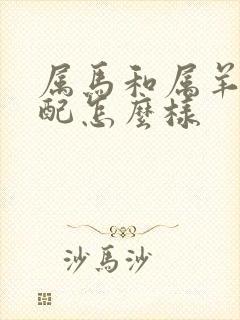 属馬和属羊
配怎麼樣
沙馬沙